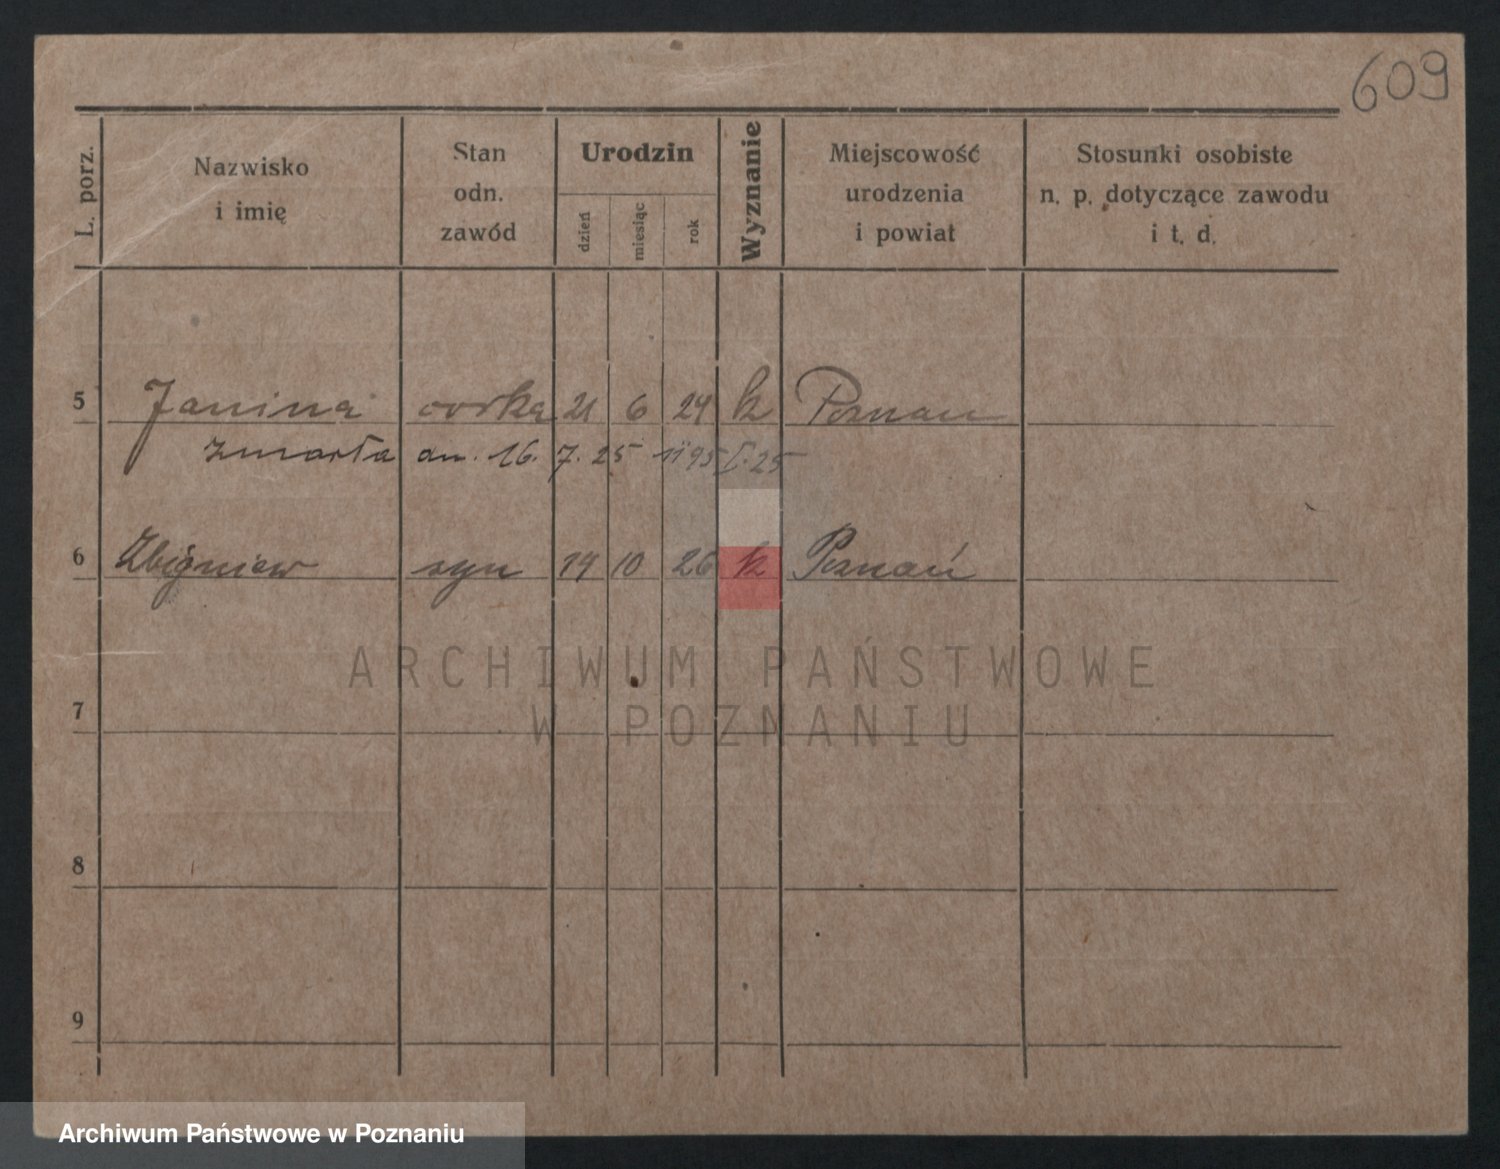 609
L. porz.
Nazwisko
i imię
Stan
odn.
zawód
Urodzin
dzień
miesiąc
rok
Wyznanie
Miejscowość
urodzenia
i powiat
Stosunki osobiste
n. p. dotyczące zawodu
i t. d.
5 Janina córka 21 6 24 k Poznań
zmarła dn. 16. 7. 25
6 Zbigniew syn 19 10 26 k Poznań
ARCHIWUM PAŃSTWOWE
W POZNANIU
7
8
9
Archiwum Państwowe w Poznaniu